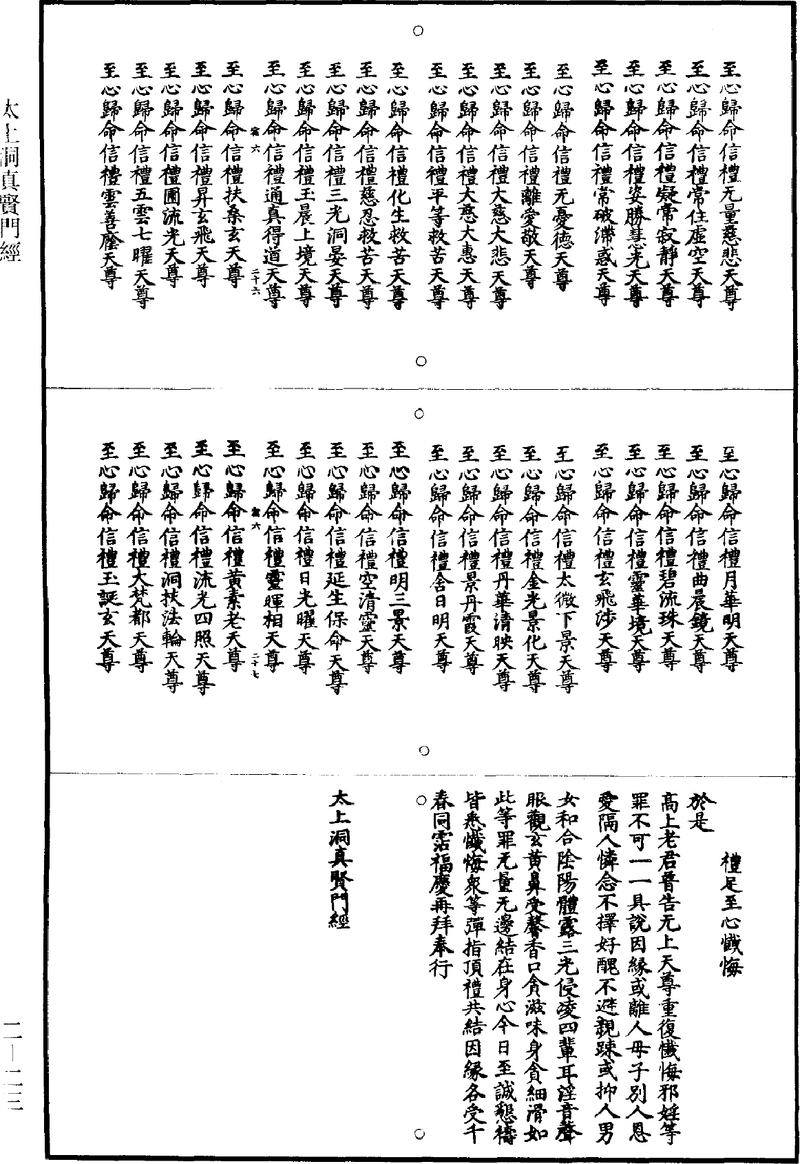 太上洞真賢門經
至心歸命信禮无量慈悲天尊
至心歸命信禮常住虛空天尊
至心歸命信禮凝常寂靜天尊
至心歸命信禮姿勝慧光天尊
至心歸命信禮常破滯惑天尊
至心歸命信禮无憂德天尊
至心歸命信禮離愛敬天尊
至心歸命信禮大慈大悲天尊
至心歸命信禮大慈大惠天尊
至心歸命信禮平等救苦天尊
至心歸命信禮化生救苦天尊
至心歸命信禮慈忍救苦天尊
至心歸命信禮三光洞晏天尊
至心歸命信禮玉晨上境天尊
至心歸命信禮通真得道天尊
六 二十六
至心歸命信禮扶桑玄天尊
至心歸命信禮昇玄飛天尊
至心歸命信禮圃流光天尊
至心歸命信禮五雲七曜天尊
至心歸命信禮雲善塵天尊
至心歸命信禮月華明天尊
至心歸命信禮曲晨鏡天尊
至心歸命信禮碧流珠天尊
至心歸命信禮靈華境天尊
至心歸命信禮玄飛涉天尊
至心歸命信禮太微下景天尊
至心歸命信禮金光景化天尊
至心歸命信禮丹華清映天尊
至心歸命信禮景丹霞天尊
至心歸命信禮含日明天尊
至心歸命信禮明三景天尊
至心歸命信禮空清靈天尊
至心歸命信禮延生保命天尊
至心歸命信禮日光曜天尊
至心歸命信禮靈暉相天尊
六 二十七
至心歸命信禮黃素老天尊
至心歸命信禮流光四照天尊
至心歸命信禮洞扶法輪天尊
至心歸命信禮大梵都天尊
至心歸命信禮玉誕玄天尊
禮足至心懺悔
於是
高上老君普告无上天尊重復懺悔邪婬等
罪不可一一具說因緣或離人母子別人恩
愛隔人憐念不擇好醜不避親踈或抑人男
女和合陰陽體露三光侵凌四輩耳淫音聲
眼觀玄黃鼻受馨香口貪滋味身貪細滑如
此等罪无量无邊結在身心今日至誠懇禱
皆悉懺悔衆等彈指頂禮共結因緣各受千
春同霑福慶再拜奉行
太上洞真賢門經
二—二三